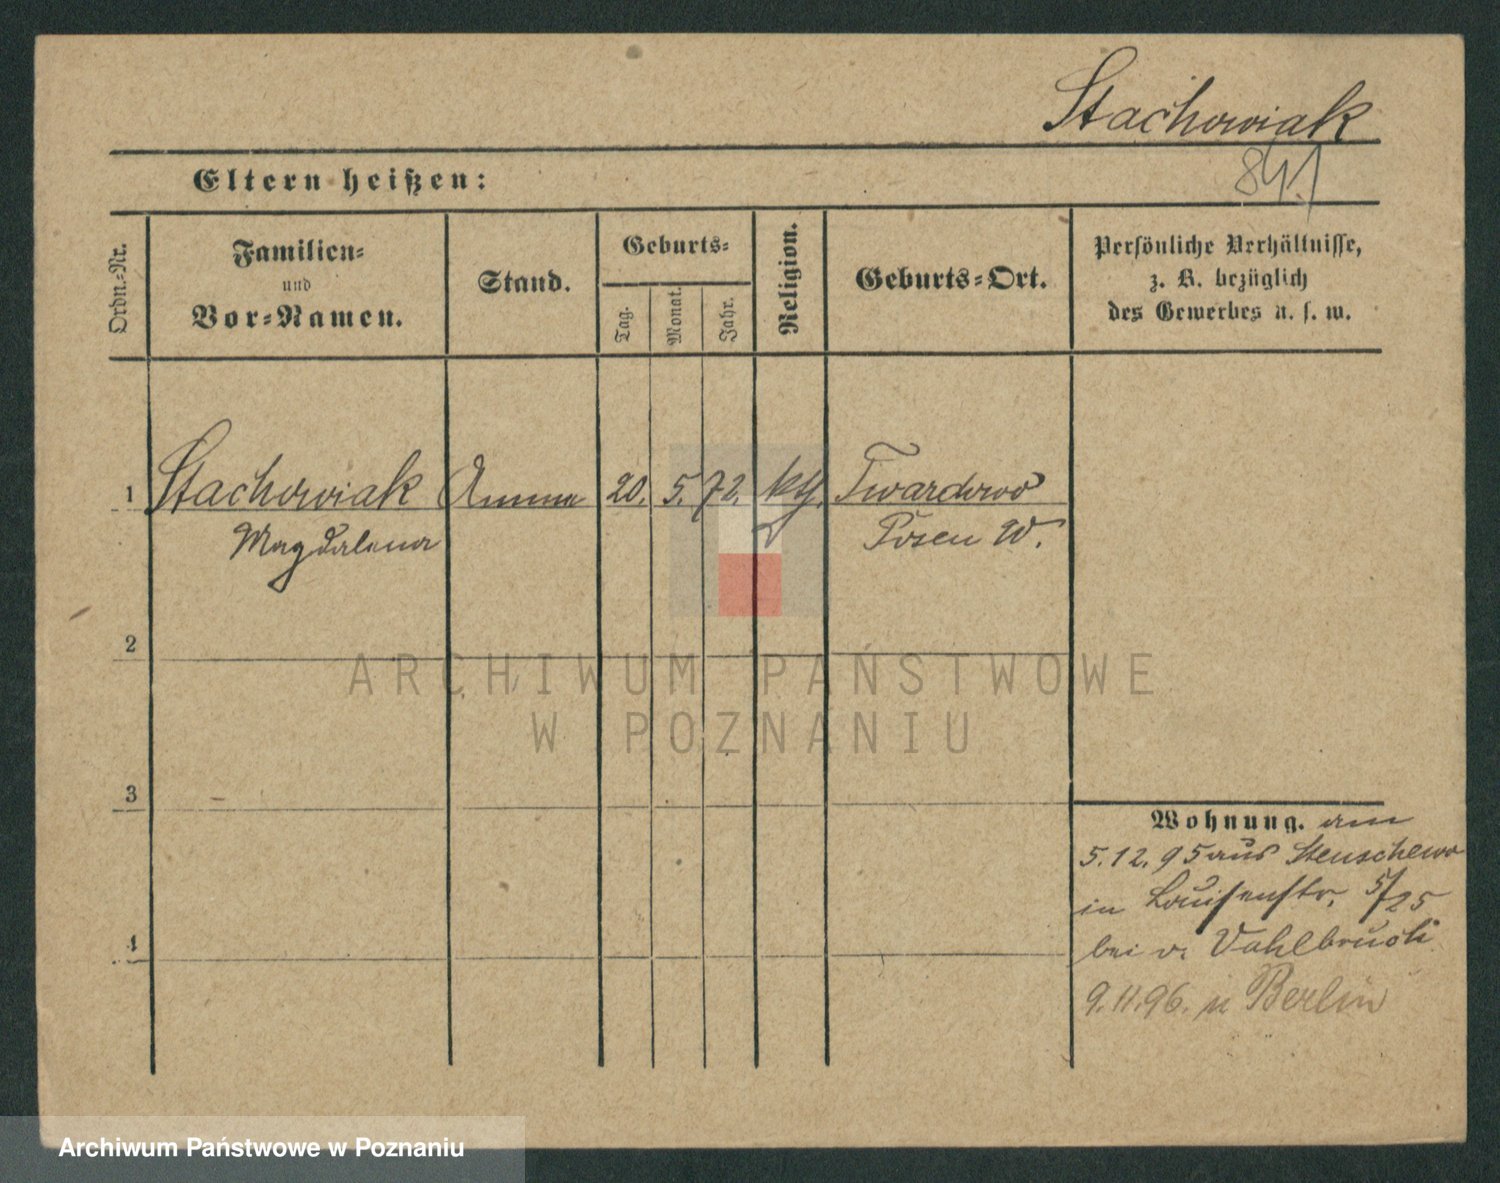 Stachowiak
841
Eltern heißen:
Ordn.-Nr.
Familien-
und
Vor-Namen.
Stand.
Geburts-
Tag.
Monat.
Jahr.
Religion.
Geburts-Ort.
Persönliche Verhältnisse,
z. B. bezüglich
des Gewerbes u. s. w.
1 Stachowiak Amme 20. 5. 72. kth. Twardowo
Magdalena Posen W.
2
3
4
Wohnung. am
5.12.95 aus Stenschewo
in Louisenstr. 5/25
bei v.
9.11.96. n Berlin
ARCHIWUM PAŃSTWOWE
W POZNANIU
Archiwum Państwowe w Poznaniu